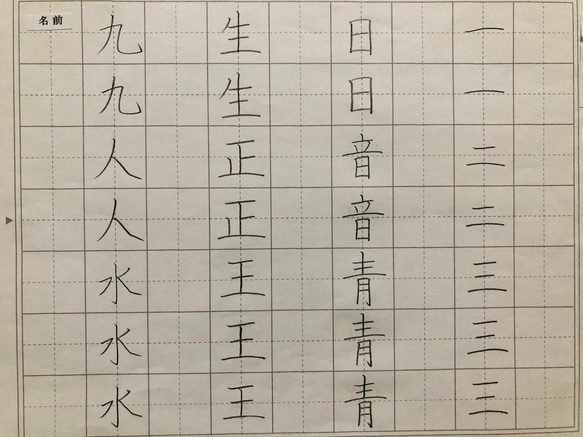 一一二二三三三
日日音音青青青
生生正正王王王
九九人人水水水
名前